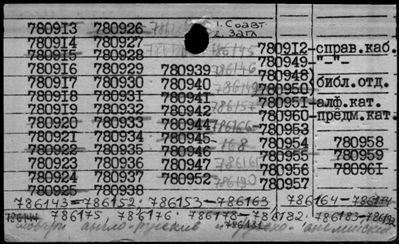 780913 780926 1. Соавт
780914 780927 2. Загл
780915 780928 780912-справ.каб.
780916 780929 780939 780949- "-"-
780917 780930 780940 780948)
780918 780931 780941 780950) библ.отд.
780919 780932 780942 780951-алф.кат.
780920 780933 780944 780960-предм.кат.
780921 780934 780945 780953
780922 780935 780946 780954 780958
780923 780936 780947 780955 780959
780924 780937 780952 780956 780961
780925 780938 780957
786143-786152; 786153-786163, 786164-
786175, 786176; 786178-786182. 786183-
англо-русский и русско-английский